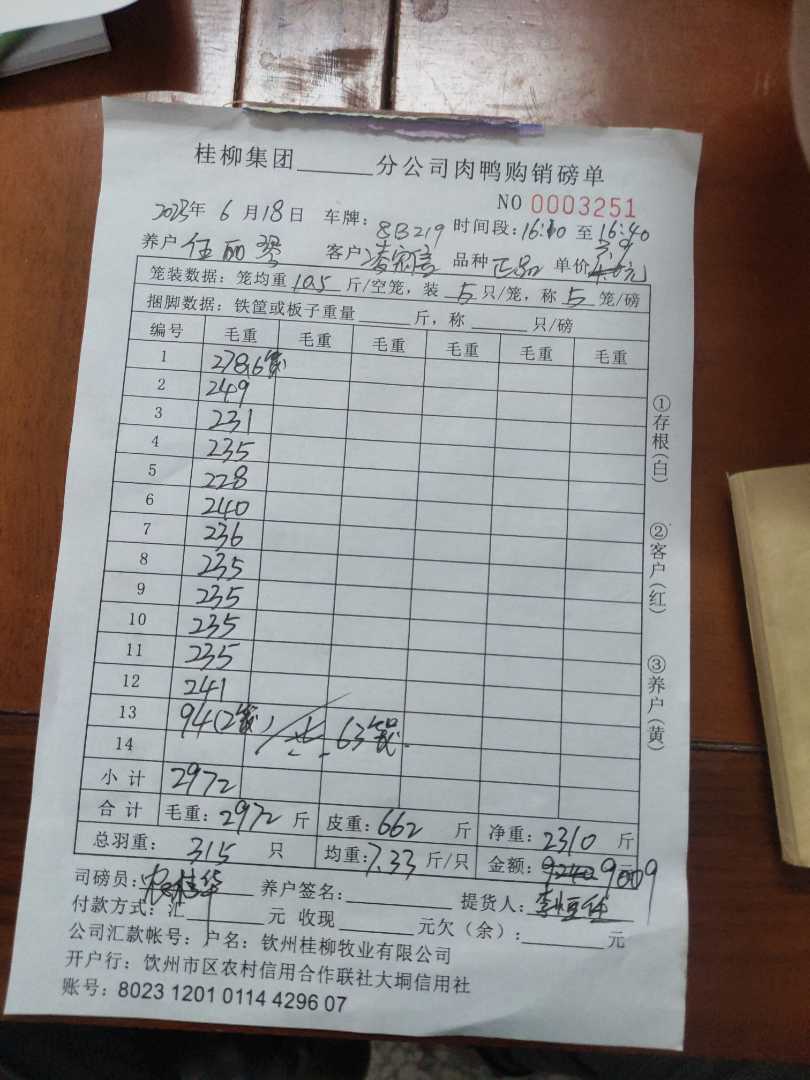 桂柳集团______分公司肉鸭购销磅单
NO 0003251
2023年 6 月 18 日 车牌: 8B219 时间段: 16:10 至 16:40
养户 伍丽琴 客户 凌家信 品种 正品 单价 3.9 元
笼装数据: 笼均重 10.5 斤/空笼, 装 5 只/笼, 称 5 笼/磅
捆脚数据: 铁筐或板子重量______斤, 称______只/磅
编号 毛重 毛重 毛重 毛重 毛重 毛重
1 278 6笼
2 249
3 231
4 235
5 228
6 240
7 236
8 235
9 235
10 235
11 235
12 241
13 94(2笼) 共 63笼.
14
小 计 2972
合 计 毛重: 2972 斤 皮重: 662 斤 净重: 2310 斤
总羽重: 315 只 均重: 7.33 斤/只 金额: 9240 9009 元
司磅员: 养户签名:______ 提货人: 李恒任
付款方式: 汇______元 收现______元欠(余):______元
公司汇款帐号: 户名: 钦州桂柳牧业有限公司
开户行: 饮州市区农村信用合作联社大垌信用社
账号: 8023 1201 0114 4296 07
①存根(白)
②客户(红)
③养户(黄)